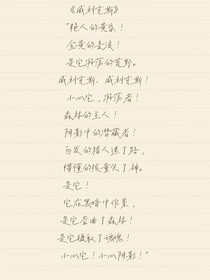 《威利克斯》
“艳人的黄昏！
金黄的麦浪！
是它游荡的荒野。
威利克斯，威利克斯！
小心它，游荡者！
森林的主人！
阴影中的潜藏者！
白发的猎人迷了路，
懵懂的孩童失了神。
是它！
它在黑暗中作祟，
是它歪曲了森林！
是它摄取了魂魄！
小心它！小心阴影！”